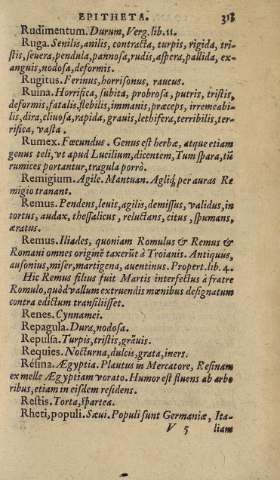 EPITHETA. 313
Rudimentum. Durum, Verg. lib. 11.
Ruga. Senilis, anilis, contracta, turpis, rigida, tri-
stis, seuera, pendula, pannosa, rudis, aspera, pallida, ex-
anguis, nodosa, deformis.
Rugitus. Ferinus, horrisonus, raucus.
Ruina. Horrifica, subita, probrosa, putris, tristis,
deformis, fatalis, flebilis, immanis, præceps, irremeabi-
lis, dira, cliuosa, rapida, grauis, lethifera, terribilis, ter-
rifica, vasta.
Rumex. Fœcundus. Genus est herbæ, atque etiam
genus teli, vt apud Lucilium, dicentem, Tum spara, tũ
rumices portantur, tragula porrò.
Remigium. Agile. Mantuan. Agliq́; per auras Re
migio tranant.
Remus. Pendens, leuis, agilis, demissus, validus, in
tortus, audax, thessalicus, reluctans, citus, spumans,
æratus.
Remus. Iliades, quoniam Romulus & Remus &
Romani omnes originẽ taxerũt à Troianis. Antiquus,
ausonius, miser, martigena, auentinus. Propert. lib. 4.
Hic Remus filius fuit Martis interfectus à fratre
Romulo, quòd vallum extruendis mœnibus designatum
contra edictum transiliisset.
Renes. Cynnamei.
Repagula. Dura, nodosa.
Repulsa. Turpis, tristis, grãuis.
Requies. Nocturna, dulcis, grata, iners.
Resina. Ægyptia. Plautus in Mercatore, Resinam
ex melle Ægyptiam vorato. Humor est fluens ab arbo
ribus, etiam in eisdem residens.
Restis. Torta, spartea.
Rheti, populi. Sæui. Populi sunt Germaniæ, Ita-
V 5 liam